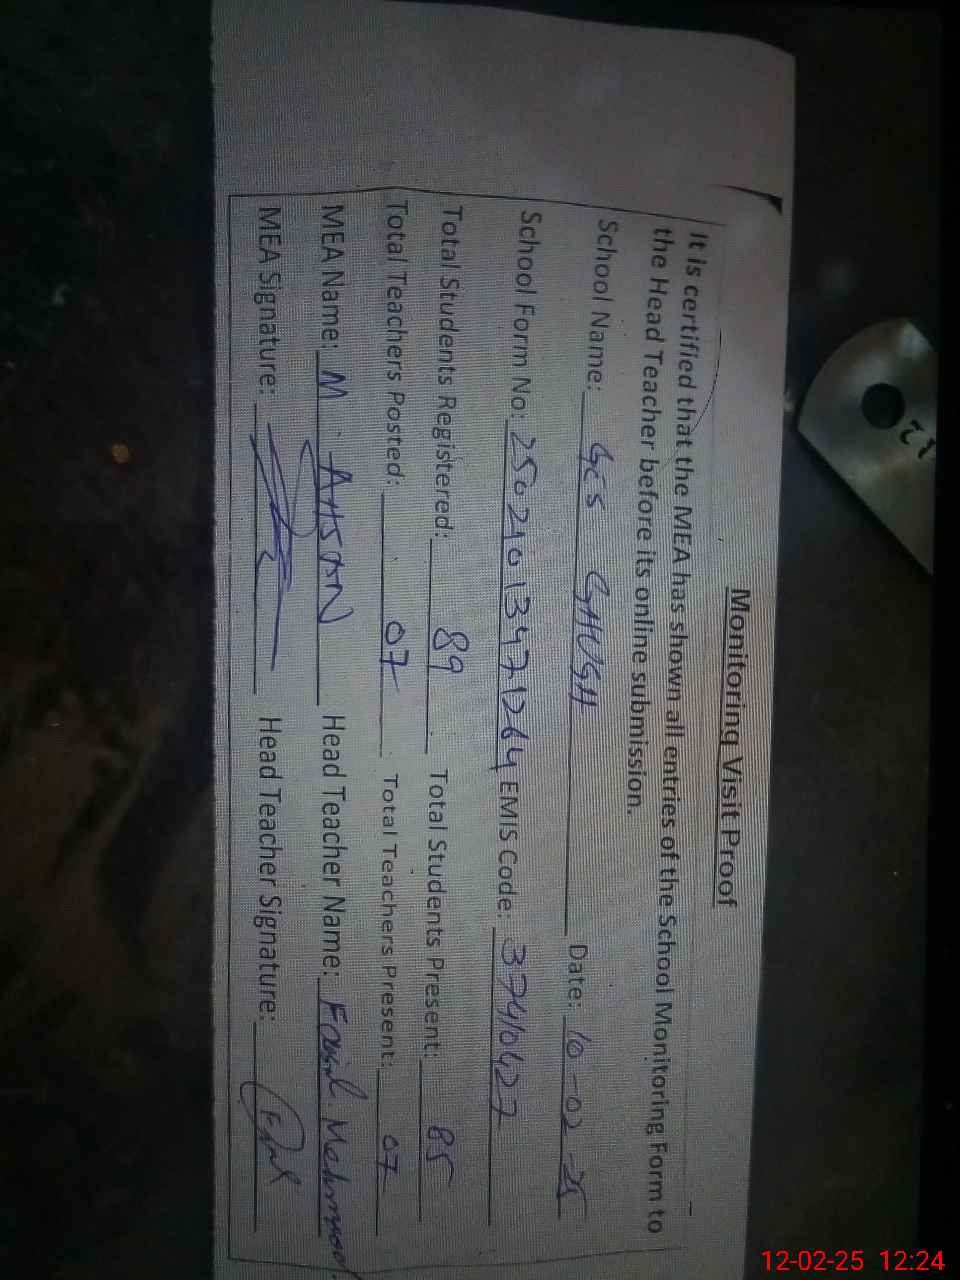 Monitoring Visit Proof
It is certified that the MEA has shown all entries of the School Monitoring Form to
the Head Teacher before its online submission.
School Name: GES GHUGH Date: 10-02-25
School Form No: 2502101347 1264 EMIS Code: 37410427
Total Students Registered: 89 Total Students Present: 85
Total Teachers Posted: 07 Total Teachers Present: 07
MEA Name: M AHSAN Head Teacher Name: Mehmood
MEA Signature: Head Teacher Signature:
12-02-25 12:24